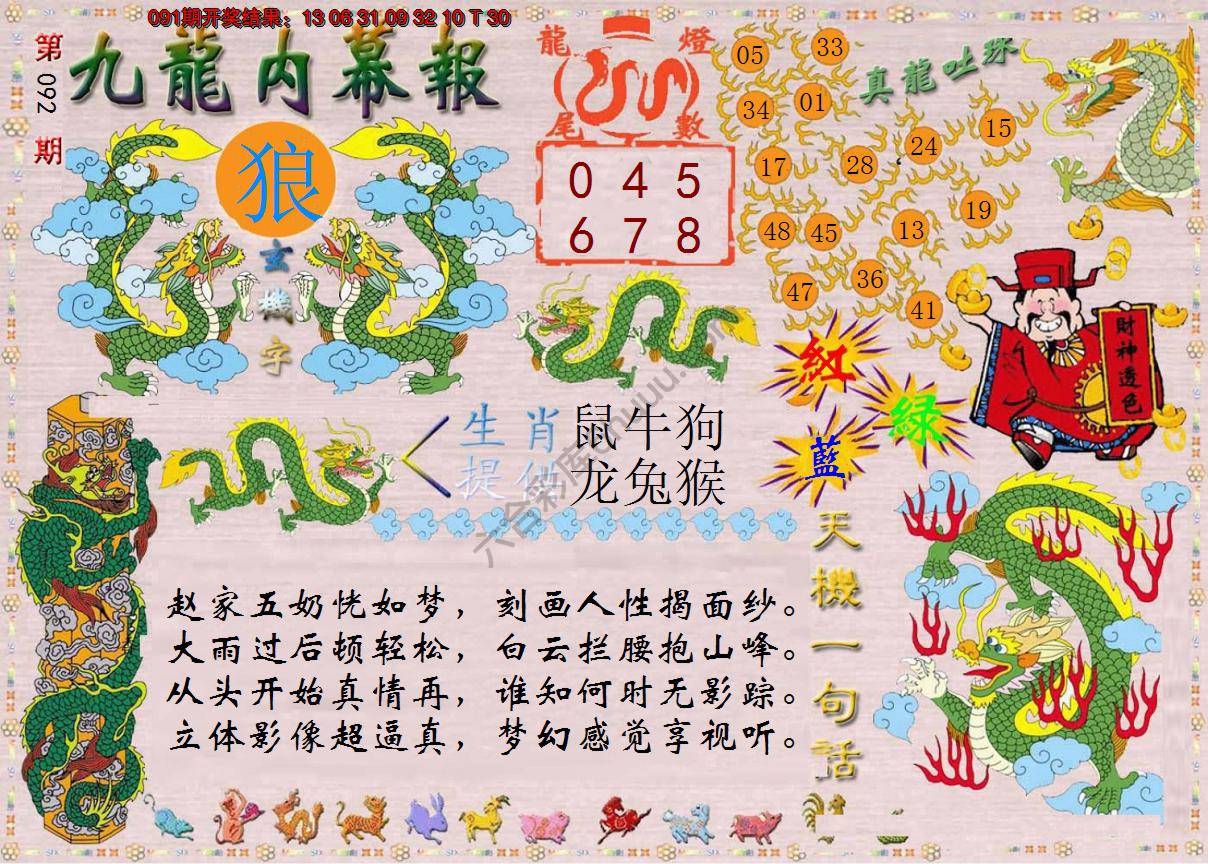 091期开奖结果：13 06 31 09 32 10 T 30
第092期
九龍內幕報
狼
玄機字
龍燈
尾數
0 4 5
6 7 8
真龍吐珠
05 33
34 01
17 28 24 15
48 45 13 19
47 36 41
財神透色
紅
綠
藍
生肖
提供
鼠牛狗
龙兔猴
赵家五奶恍如梦，刻画人性揭面纱。
大雨过后顿轻松，白云拦腰抱山峰。
从头开始真情再，谁知何时无影踪。
立体影像超逼真，梦幻感觉享视听。
天機一句話